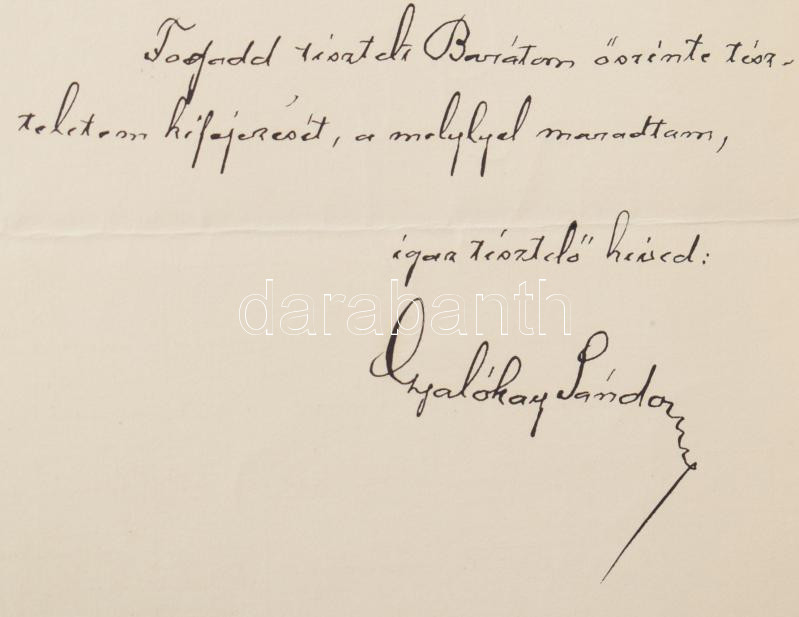 Fogadd tisztelt Barátom őszinte tisz-
teletem kifejezését, a melylyel maradtam,
igaz tisztelő hived:
darabanth
Gyalókay Sándor